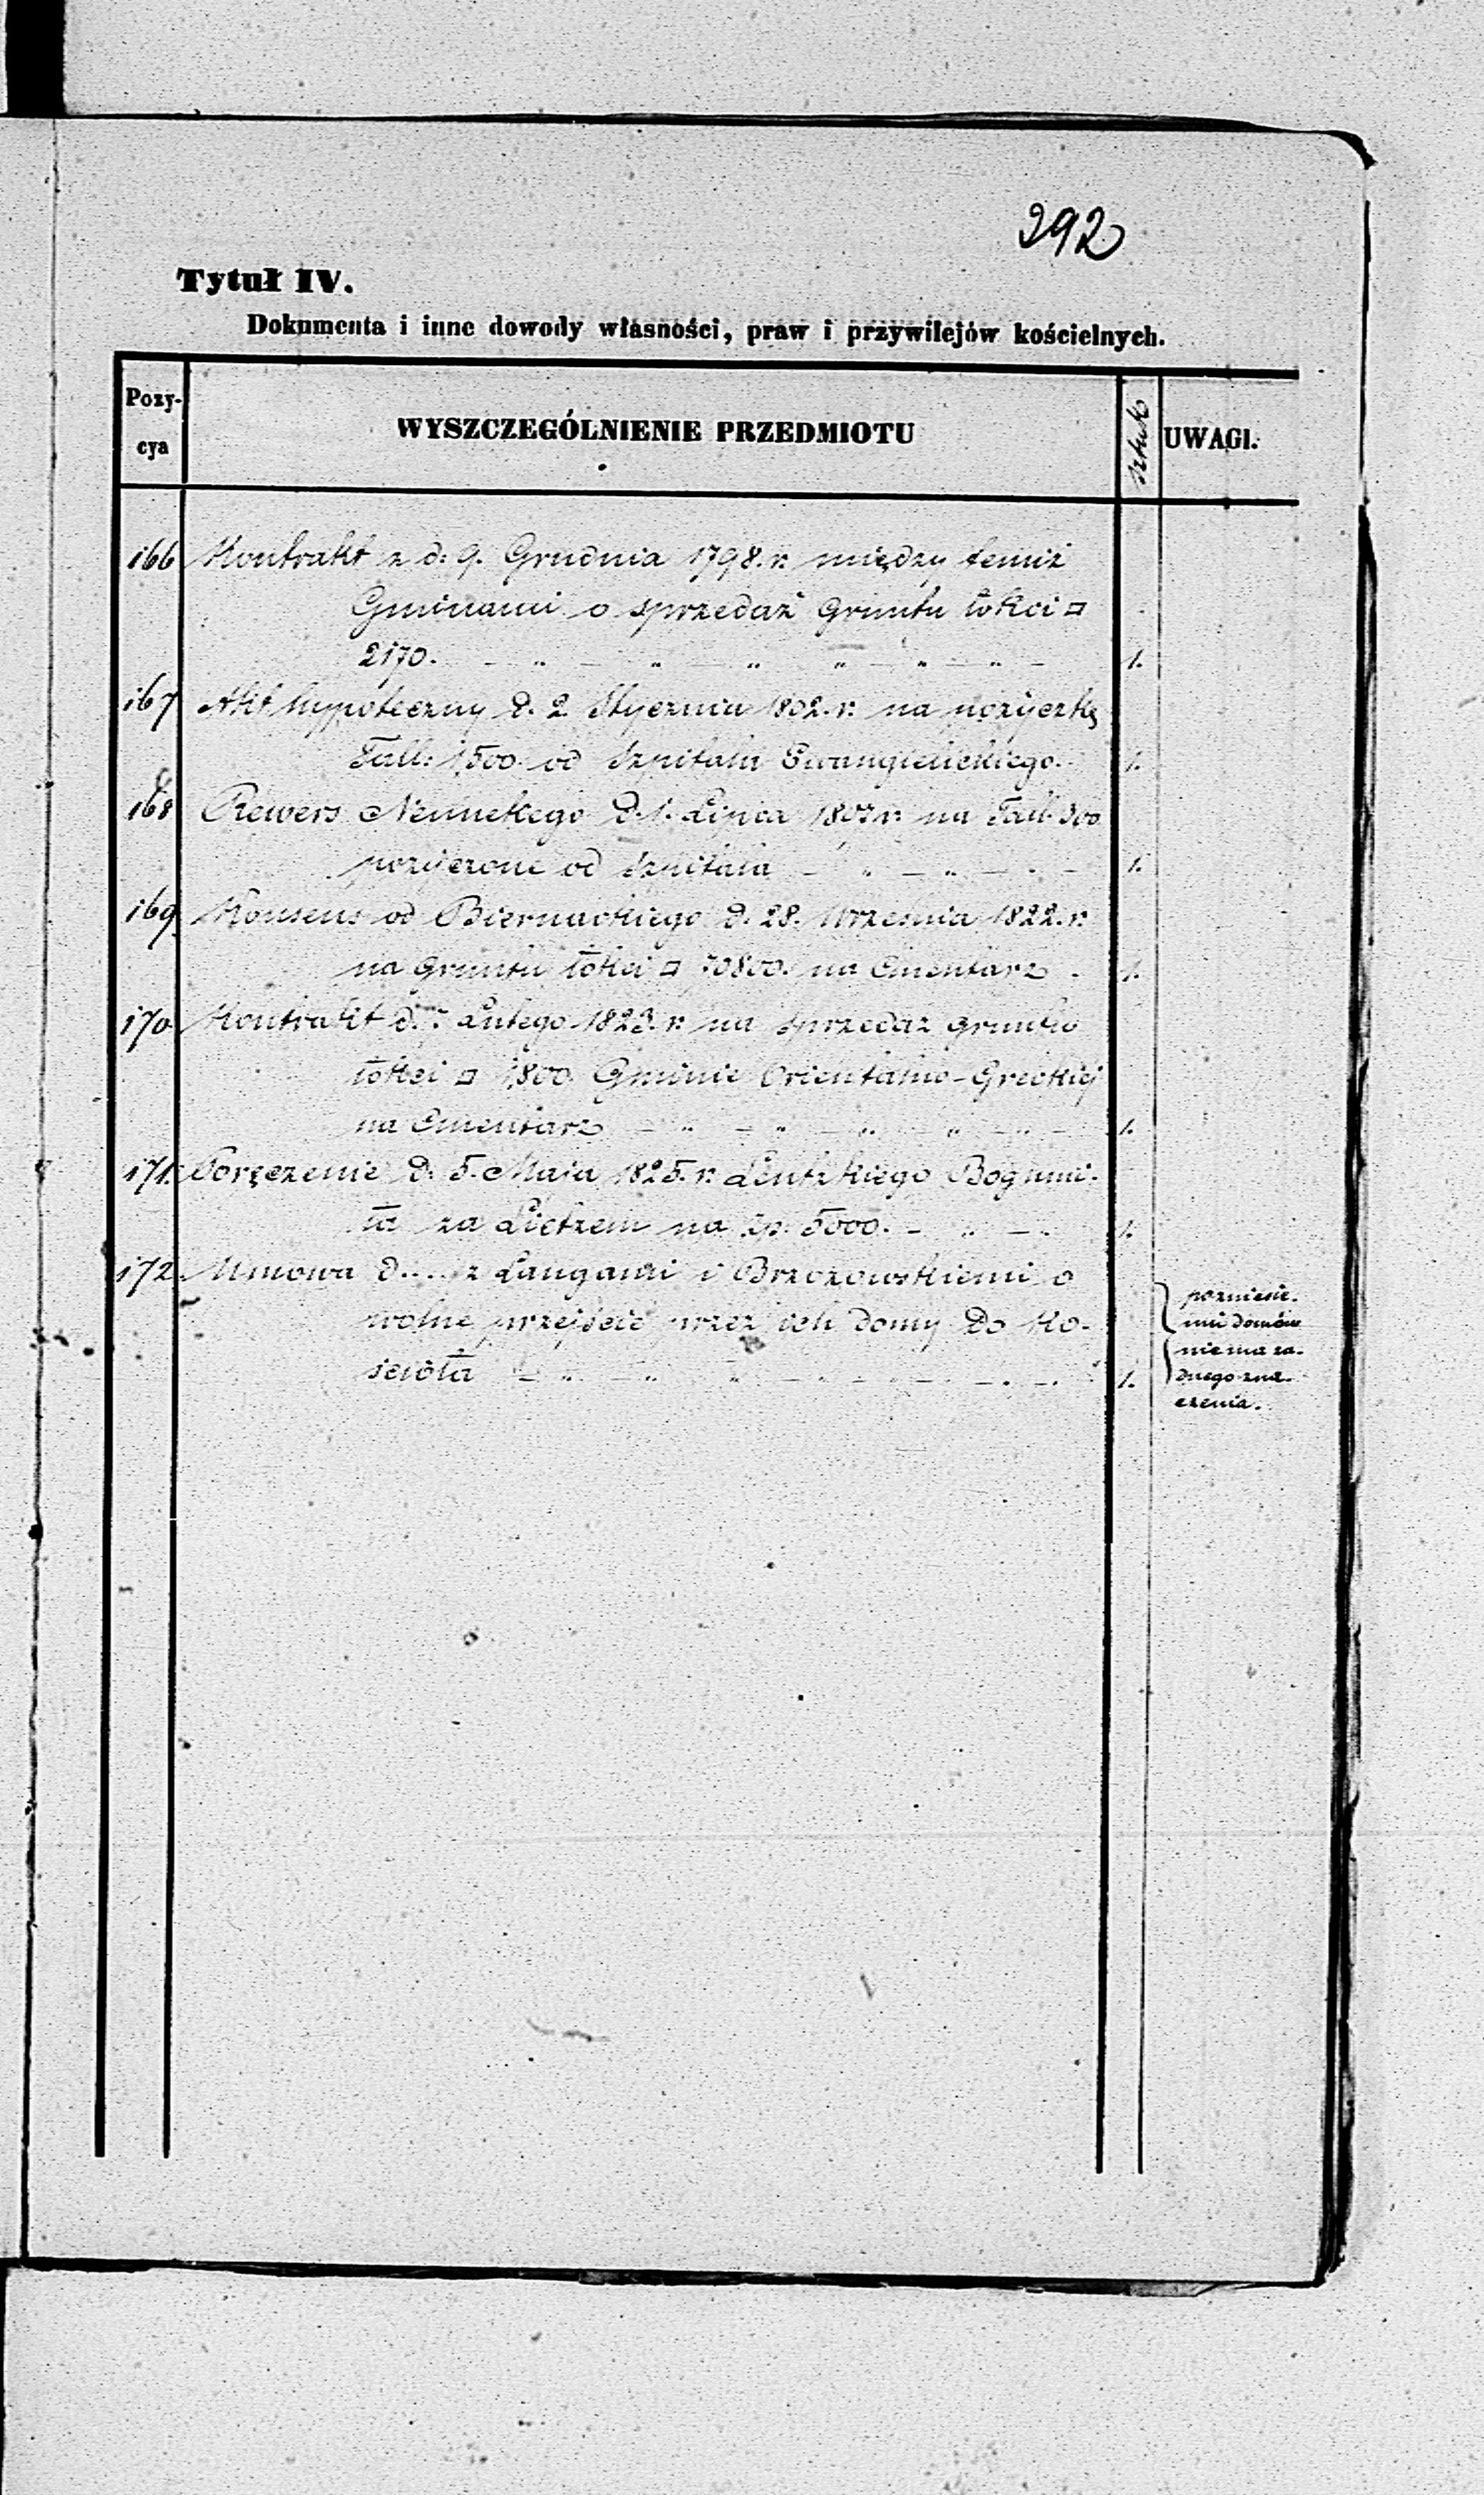 392
Tytuł IV.
Dokumenta i inne dowody własności, praw i przywilejów kościelnych.
Pozy-
cya
WYSZCZEGÓLNIENIE PRZEDMIOTU
Sztuk
UWAGI.
166 Kontrakt z d: 9. Grudnia 1798. r: między temiż
Gminami o sprzedaż gruntu łokci □
2170. — „ — „ — „ „ — „ — „ — 1.
167 Akt hypoteczny d. 2 Stycznia 1802. r: na pożyczkę
Tall: 1,500. od Szpitala Ewangielickiego. 1.
168 Rewers d. 1. Lipca r: na Tall. 300
pożyczone od Szpitala — „ — „ — „ — 1.
169 Konsens od Biernackiego d. 28. Września 1822. r:
na gruntu łokci □ 70800. na Cmentarz . 1.
170 Kontrakt d. Lutego 1823. r: na sprzedaż gruntu
łokci □ 1,800. Gminie Orientalno-Greckiej
na Cmentarz — „ — „ — „ — „ — „ — 1.
171. Poręczenie d: 5. Maja 1825. r: Lentzkiego Bogumi-
ła za Lietzem na zp. 5000. — „ — . 1.
172. Umowa d.... z Langami i Brzozowskiemi o
wolne przejście przez ich domy do Ko-
ścioła — „ — „ „ — „ — „ — . — . 1.
po zniesie-
niu domów
nie ma ża-
dnego zna-
czenia.